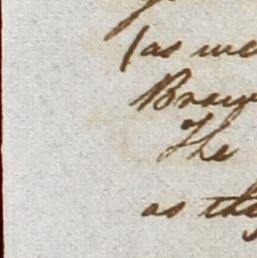 (as we
Brow
The
as the